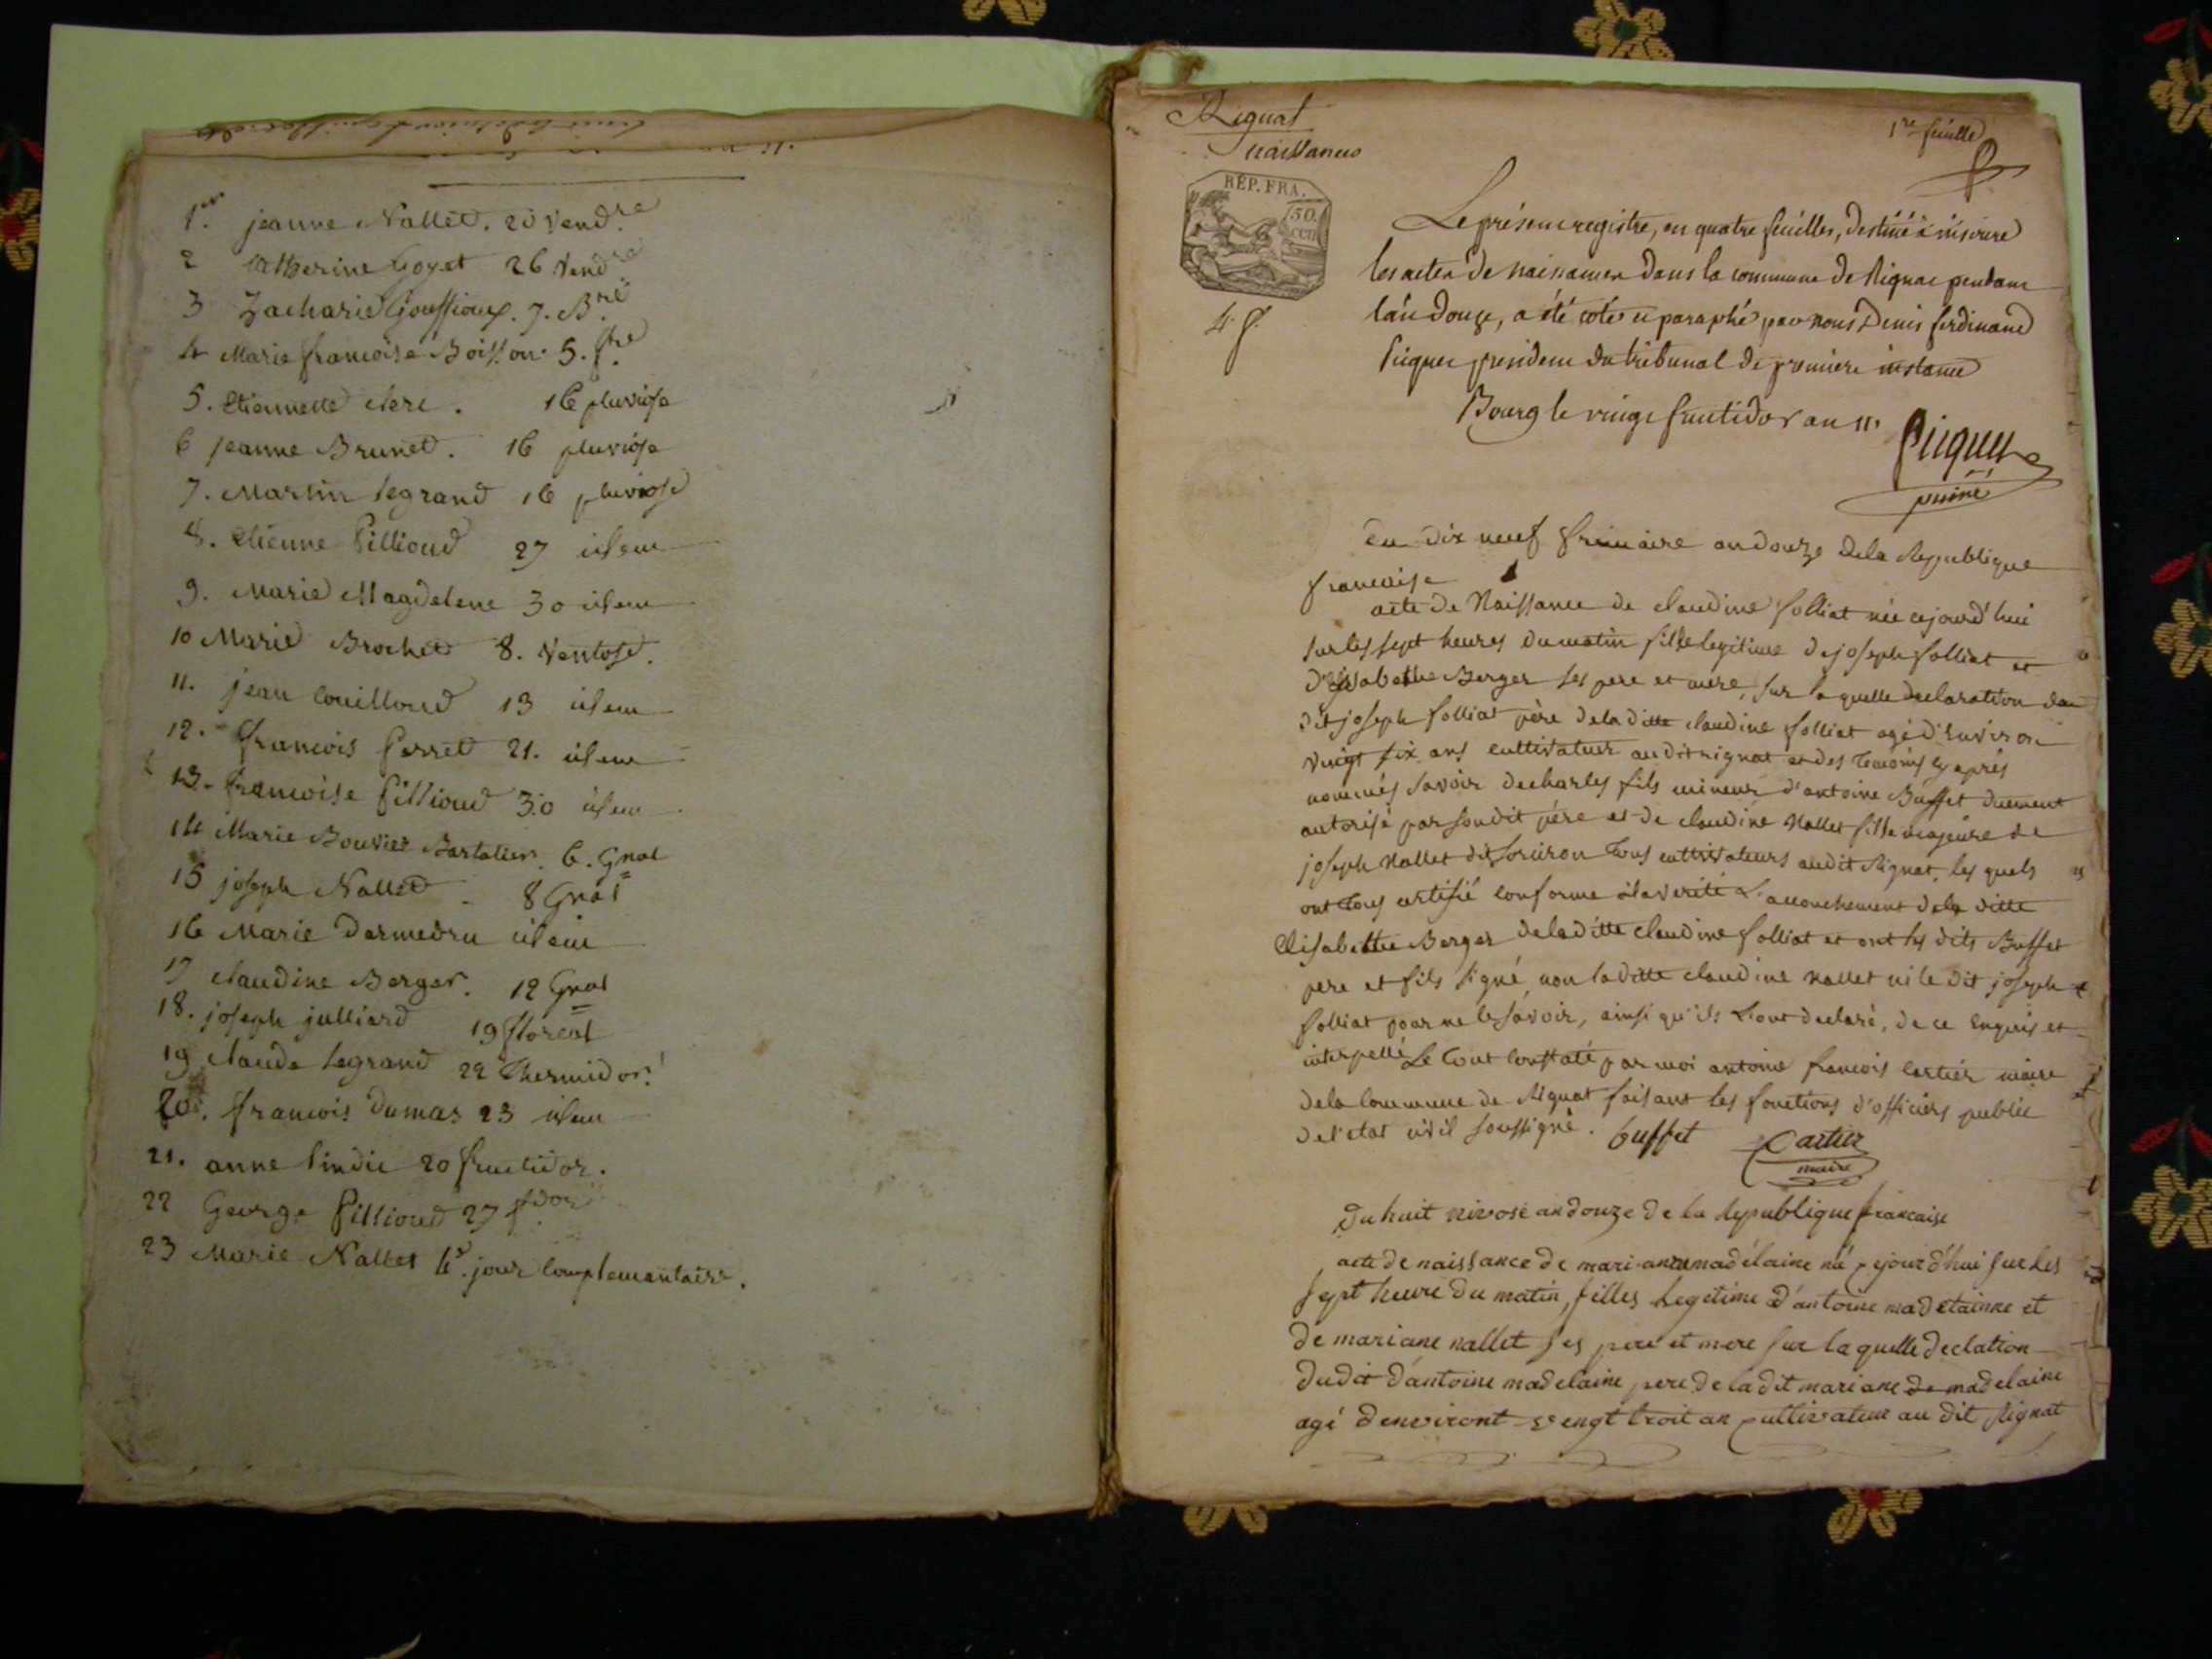 1er. jeanne Nallet. 20 Vend.re
2 Catherine Goyet 26 Vend.re
3 Zacharie Gouffioux. 7. B.re
4 Marie francoise Boisson 5. f.re
5. Etiennette clerc. 16 pluviose
6 jeanne Brunet. 16 pluviose
7. Martin legrand 16 pluviose
8. Etienne Pillioud 27 idem
9. Marie Magdelene 30 idem
10 Marie Brochet 8. Ventose.
11. jean Couilloud 13 idem
12. francois Perret 21. idem
13. francoise Pillioud 30 idem
14 Marie Bouvier Bartalier. 6. Gnal
15 joseph Nallet 8 Gnal
16 Marie Darmedru idem
17 claudine Berger. 12 Gnal
18. joseph julliard 19 floreal
19 claude legrand 22 Thermidor.
20. francois Dumas 23 idem
21. anne Pindie 20 fructidor.
22 George Pillioud 27 f.dor
23 Marie Nallet 4e. jour Complementaire.
Rignat
naissances
1re feuille
REP. FRA.
50.
CEN
4. f.
Le présent registre, en quatre feuilles, destiné à inscrire
les actes de naissances dans la commune de Rignat pendant
l'an Douze, a été coté et paraphé par nous Denis ferdinand
Picquet president du tribunal de premiere instance
Bourg le vingt fructidor an 11
Picquet
puiné
Du dix neuf frimaire an douze dela Republique
francaise
acte de Naissance de claudine folliat née cejourd'hui
sur les sept heures du matin fille legitime de joseph folliat et
d'Elisabethe Berger ses pere et mere, sur laquelle declaration du
dit joseph folliat père dela ditte claudine folliat agé d'Environ
vingt six ans cultivateur audit rignat et des temoins cy après
nommés savoir de charles fils mineur d'antoine Buffet duement
autorisé par son dit père et de claudine Nallet fille majeure de
joseph Nallet dit tous cultivateurs audit Rignat, les quels
ont tous certifié conforme à la verité L'accouchement dela ditte
Elisabethe Berger dela ditte claudine folliat et ont les dits Buffet
pere et fils signé, non la ditte claudine Nallet ni le dit joseph
folliat pour ne le savoir, ainsi qu'ils L'ont declaré, de ce Enquis et
interpellé Le tout constaté par moi antoine francois cartier maire
dela commune de Rignat faisant les fonctions d'officiers public
de l'etat civil soussigné. buffet Cartier
maire
Du huit nivose an douze de la Republique francaise
acte de naissance de mari-anne madélaine né cejourd'hui sur les
sept heure du matin, filles Legitime d'antoine madelainne et
de mariane nallet ses pere et mere sur laquelle declation
dudit d'antoine madelaine pere de ladit mariane de madelaine
agé denviront vengt troit an cultivateur au dit Rignat